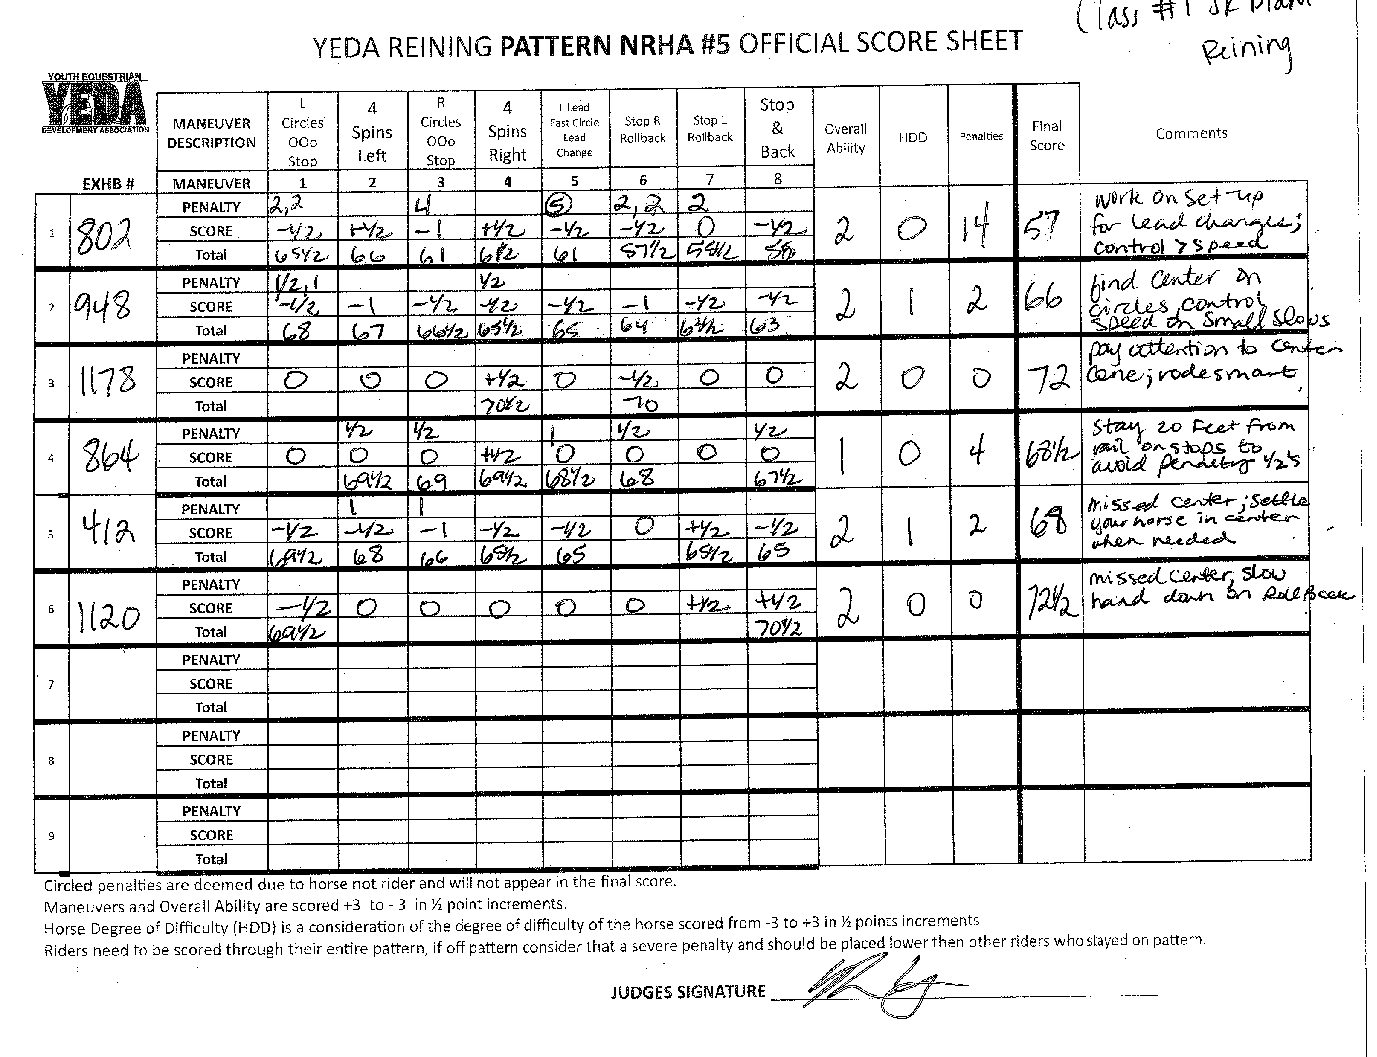 Class #1 JR
Reining
YEDA REINING PATTERN NRHA #5 OFFICIAL SCORE SHEET
YOUTH EQUESTRIAN
YEDA
DEVELOPMENT ASSOCIATION
MANEUVER DESCRIPTION L Circles OOo Stop 4 Spins Left R Circles OOo Stop 4 Spins Right L Lead Fast Circle Lead Change Stop R Rollback Stop L Rollback Stop & Back Overall Ability HDD Penalties Final Score Comments
EXHB # MANEUVER 1 2 3 4 5 6 7 8
PENALTY 2,2 4 5 2,2 2
1 802 SCORE -1/2 +1/2 -1 +1/2 -1/2 -1/2 0 -1/2 2 0 14 57
Total 65 1/2 66 61 61 1/2 61 57 1/2 58
work on set-up
for lead changes;
control > speed
PENALTY 1/2,1 1/2
2 948 SCORE -1/2 -1 -1/2 -1/2 -1/2 -1 -1/2 -1/2 2 1 2 66
Total 68 67 66 1/2 65 1/2 65 64 63
find center on
circles, control
speed on small slows
PENALTY
3 1178 SCORE 0 0 0 +1/2 0 -1/2 0 0 2 0 0 72
Total 70 1/2 70
pay attention to center
cone; rode smart
PENALTY 1/2 1/2 1 1/2 1/2
4 864 SCORE 0 0 0 +1/2 0 0 0 0 1 0 4 68 1/2
Total 69 1/2 69 69 1/2 68 1/2 68 67 1/2
Stay 20 feet from
rail on stops to
avoid penalty 1/2's
PENALTY 1 1
5 412 SCORE -1/2 -1/2 -1 -1/2 -1/2 0 +1/2 -1/2 2 1 2 68
Total 69 1/2 68 66 65 1/2 65 65 1/2 65
missed center; settle
your horse in center
when needed
PENALTY
6 1120 SCORE -1/2 0 0 0 0 0 +1/2 +1/2 2 0 0 72 1/2
Total 69 1/2 70 1/2
missed center, slow
hand down on Rollback
PENALTY
7 SCORE
Total
PENALTY
8 SCORE
Total
PENALTY
9 SCORE
Total
Circled penalties are deemed due to horse not rider and will not appear in the final score.
Maneuvers and Overall Ability are scored +3 to - 3 in ½ point increments.
Horse Degree of Difficulty (HDD) is a consideration of the degree of difficulty of the horse scored from -3 to +3 in ½ points increments
Riders need to be scored through their entire pattern, if off pattern consider that a severe penalty and should be placed lower then other riders who stayed on pattern.
JUDGES SIGNATURE